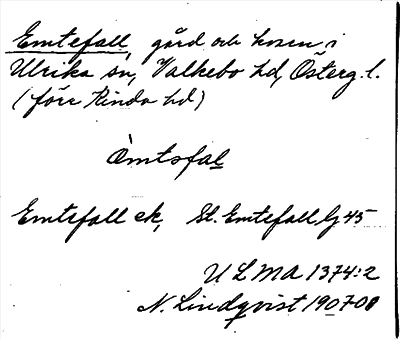 Emtefall, gård och kvarn, i
Ulrika sn, Valkebo hd, Österg. l.
(förr Kinda hd)
Emtefall ek, St. Emtefall lg 45
ULMA 1374:2
N. Lindqvist 1907-08